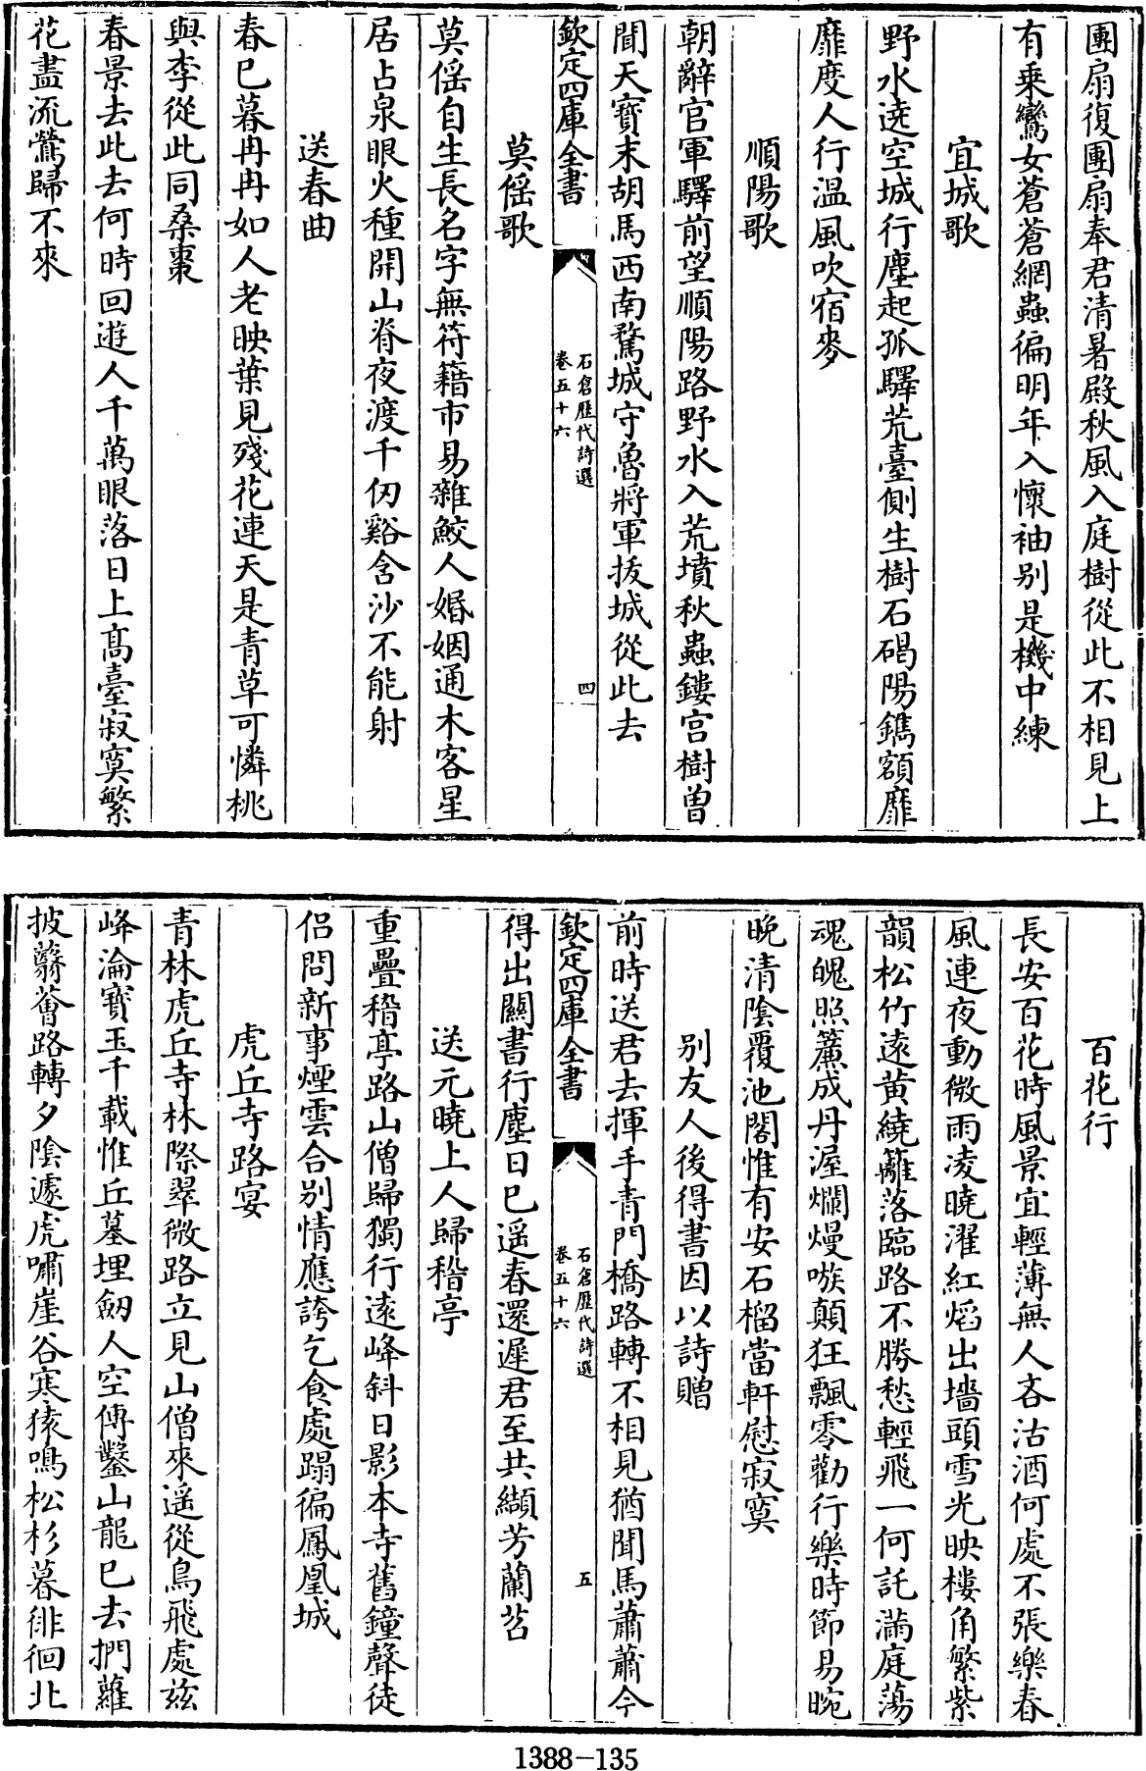 團扇復團扇奉君清暑殿秋風入庭樹從此不相見上
有乗鸞女蒼蒼網蟲徧明年入懷袖别是機中練
宜城歌
野水遶空城行塵起孤驛荒臺側生樹石碣陽鐫額靡
靡度人行温風吹宿麥
順陽歌
朝辭官軍驛前望順陽路野水入荒墳秋蟲鏤宫樹曽
聞天寳末胡馬西南騖城守魯將軍拔城從此去
欽定四庫全書
石倉歷代詩選
卷五十六
四
莫傜歌
莫傜自生長名字無符籍市易雜鮫人婚姻通木客星
居占泉眼火種開山脊夜渡千仞谿含沙不能射
送春曲
春已暮冉冉如人老映葉見殘花連天是青草可憐桃
與李從此同桑棗
春景去此去何時回遊人千萬眼落日上髙臺寂寞繁
花盡流鶯歸不來
百花行
長安百花時風景宜輕薄無人不沽酒何處不張樂春
風連夜動微雨凌曉濯紅熖出墻頭雪光映樓角繁紫
韻松竹逺黄繞籬落臨路不勝愁輕飛一何託滿庭蕩
魂魄照簷成丹渥爛熳嗾顛狂飄零勸行樂時節易晼
晚清陰覆池閣惟有安石榴當軒慰寂寞
别友人後得書因以詩贈
前時送君去揮手青門橋路轉不相見猶聞馬蕭蕭今
欽定四庫全書
石倉歷代詩選
卷五十六
五
得出關書行塵日已遥春還遲君至共纈芳蘭苕
送元曉上人歸稽亭
重疊稽亭路山僧歸獨行逺峰斜日影本寺舊鐘聲徒
侶問新事煙雲合别情應誇乞食處蹋徧鳳凰城
虎丘寺路宴
青林虎丘寺林際翠微路立見山僧來遥從鳥飛處兹
峰淪寳玉千載惟丘墓埋劒人空傳鑿山龍已去捫蘿
披蘙薈路轉夕陰遽虎嘯崖谷寒猿鳴松杉暮徘徊北
1388-135